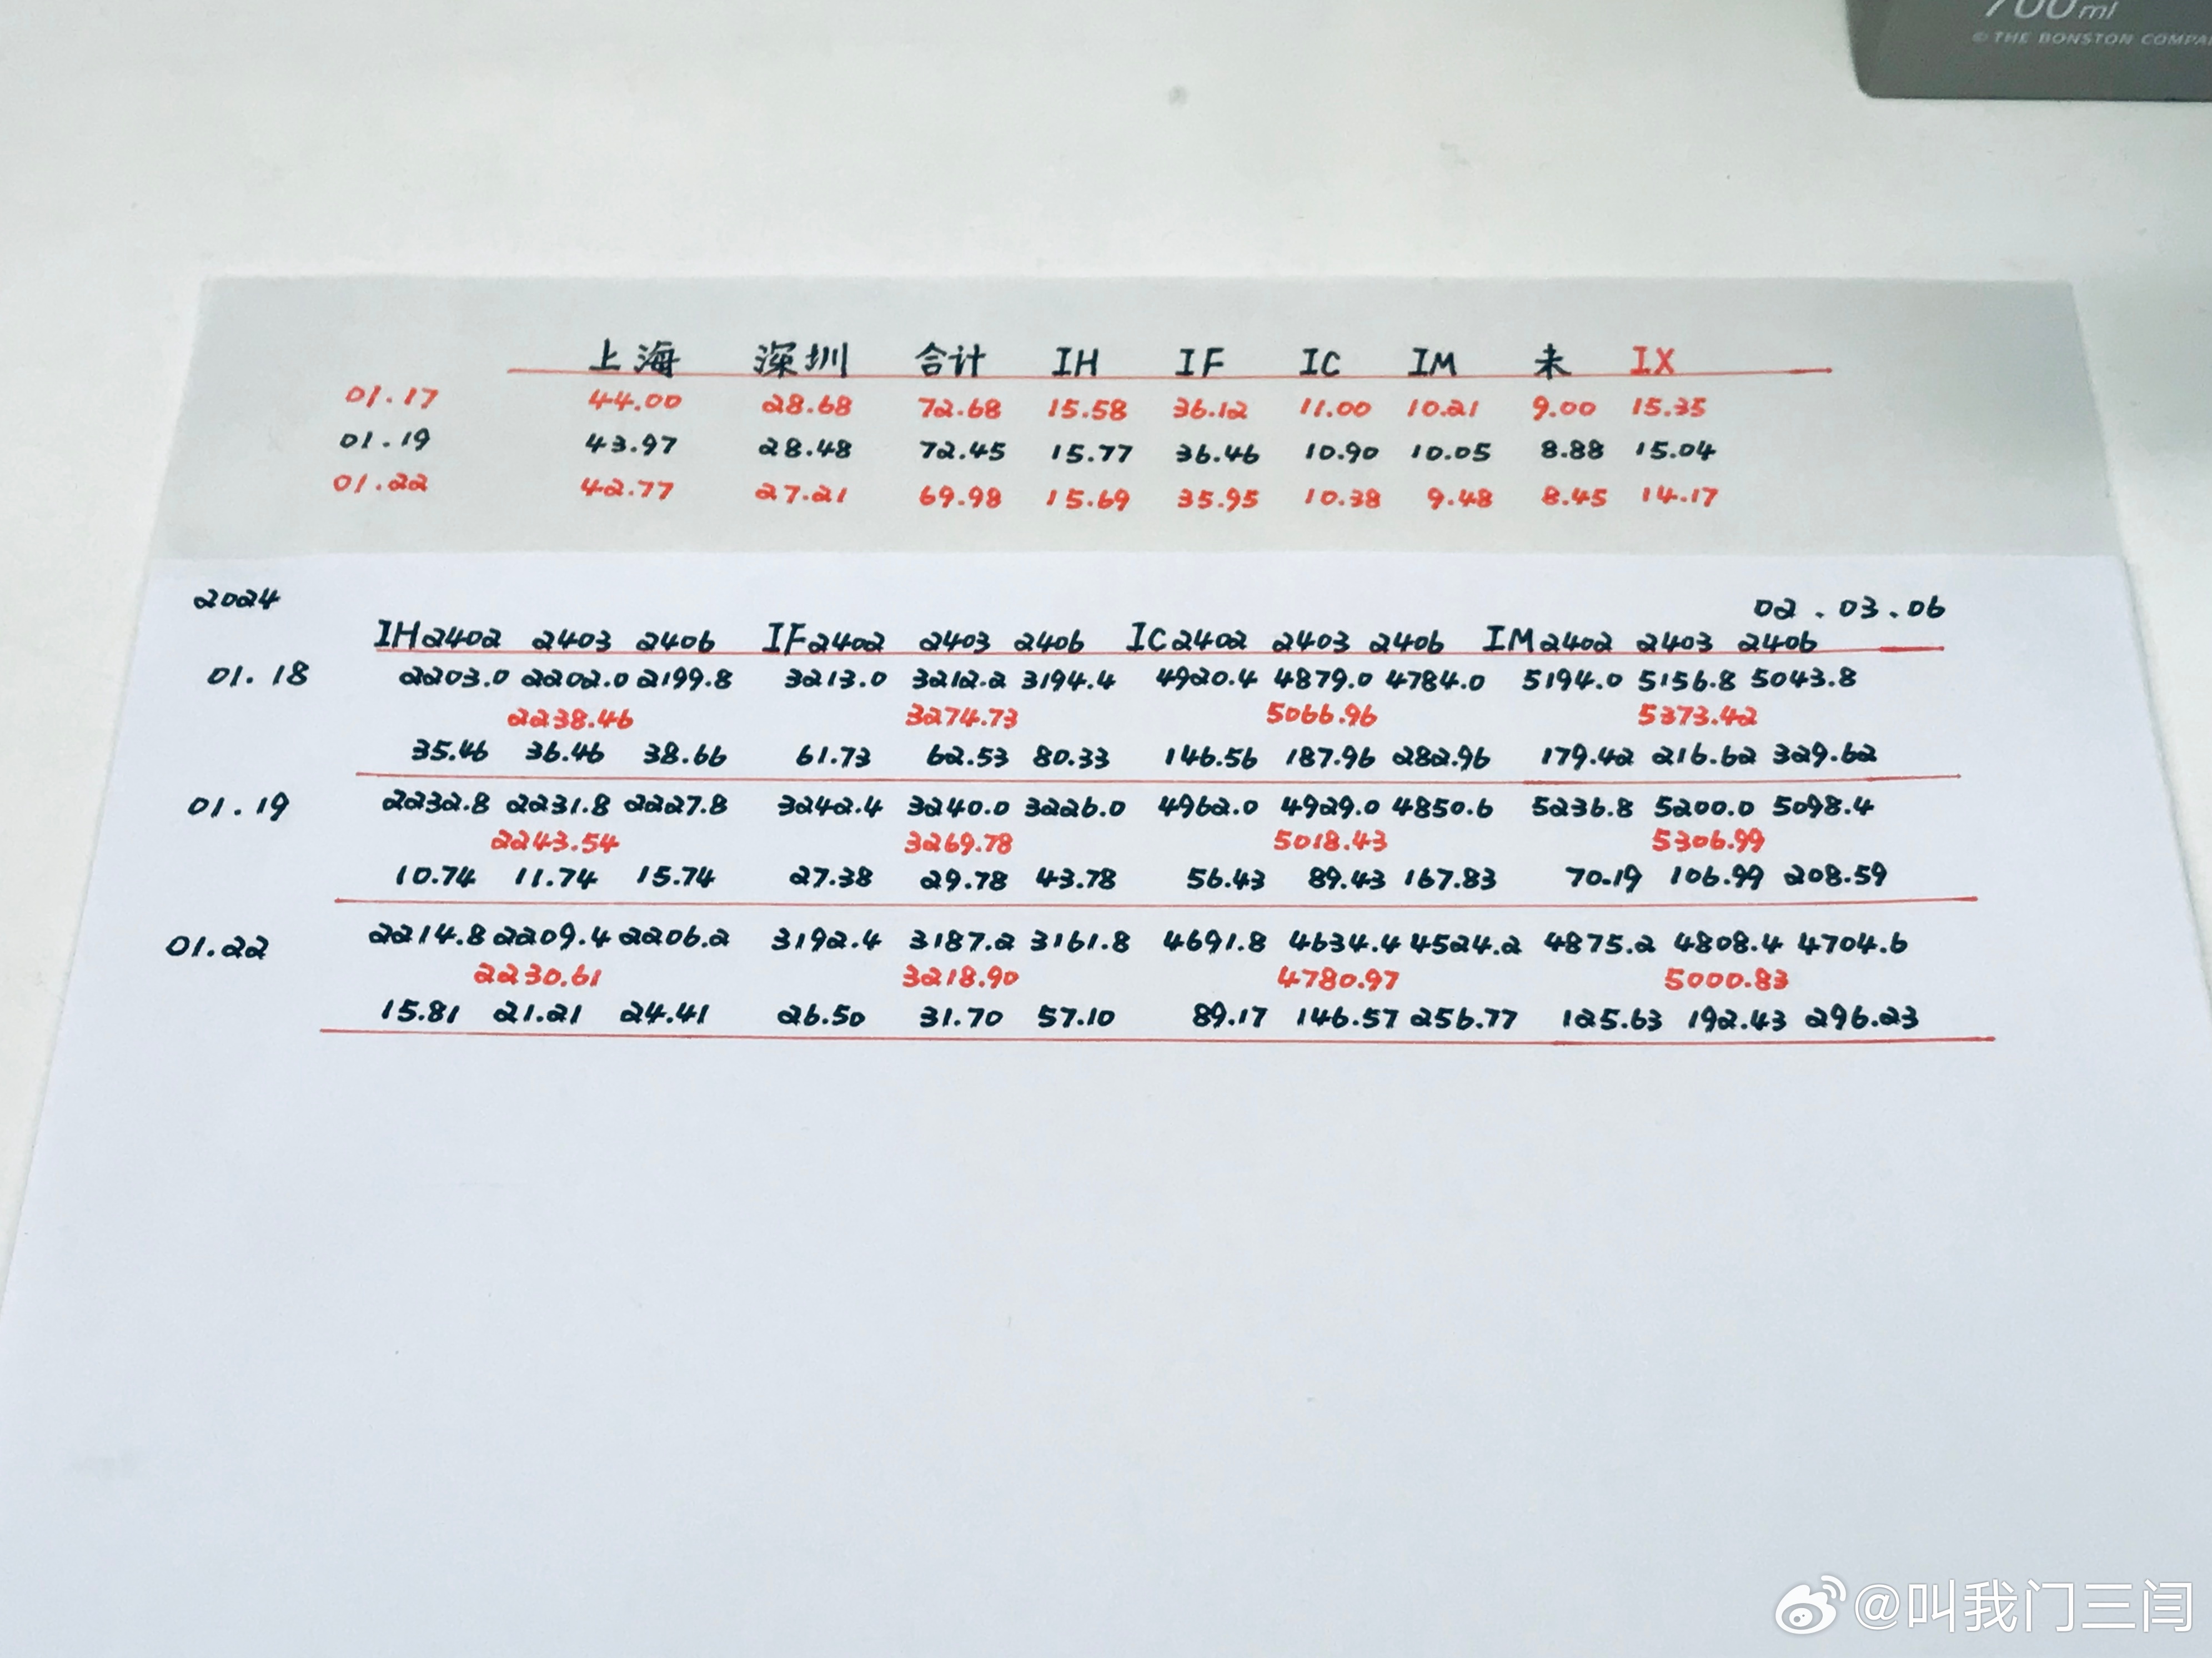 700ml
© THE BONSTON COMPA
上海 深圳 合计 IH IF IC IM 未 IX
01.17 44.00 28.68 72.68 15.58 36.12 11.00 10.21 9.00 15.35
01.19 43.97 28.48 72.45 15.77 36.46 10.90 10.05 8.88 15.04
01.22 42.77 27.21 69.98 15.69 35.95 10.38 9.48 8.45 14.17
2024 02.03.06
IH2402 2403 2406 IF2402 2403 2406 IC2402 2403 2406 IM2402 2403 2406
01.18 2203.0 2202.0 2199.8 3213.0 3212.2 3194.4 4920.4 4879.0 4784.0 5194.0 5156.8 5043.8
2238.46 3274.73 5066.96 5373.42
35.46 36.46 38.66 61.73 62.53 80.33 146.56 187.96 282.96 179.42 216.62 329.62
01.19 2232.8 2231.8 2227.8 3242.4 3240.0 3226.0 4962.0 4929.0 4850.6 5236.8 5200.0 5098.4
2243.54 3269.78 5018.43 5306.99
10.74 11.74 15.74 27.38 29.78 43.78 56.43 89.43 167.83 70.19 106.99 208.59
01.22 2214.8 2209.4 2206.2 3192.4 3187.2 3161.8 4691.8 4634.4 4524.2 4875.2 4808.4 4704.6
2230.61 3218.90 4780.97 5000.83
15.81 21.21 24.41 26.50 31.70 57.10 89.17 146.57 256.77 125.63 192.43 296.23
@叫我门三闫